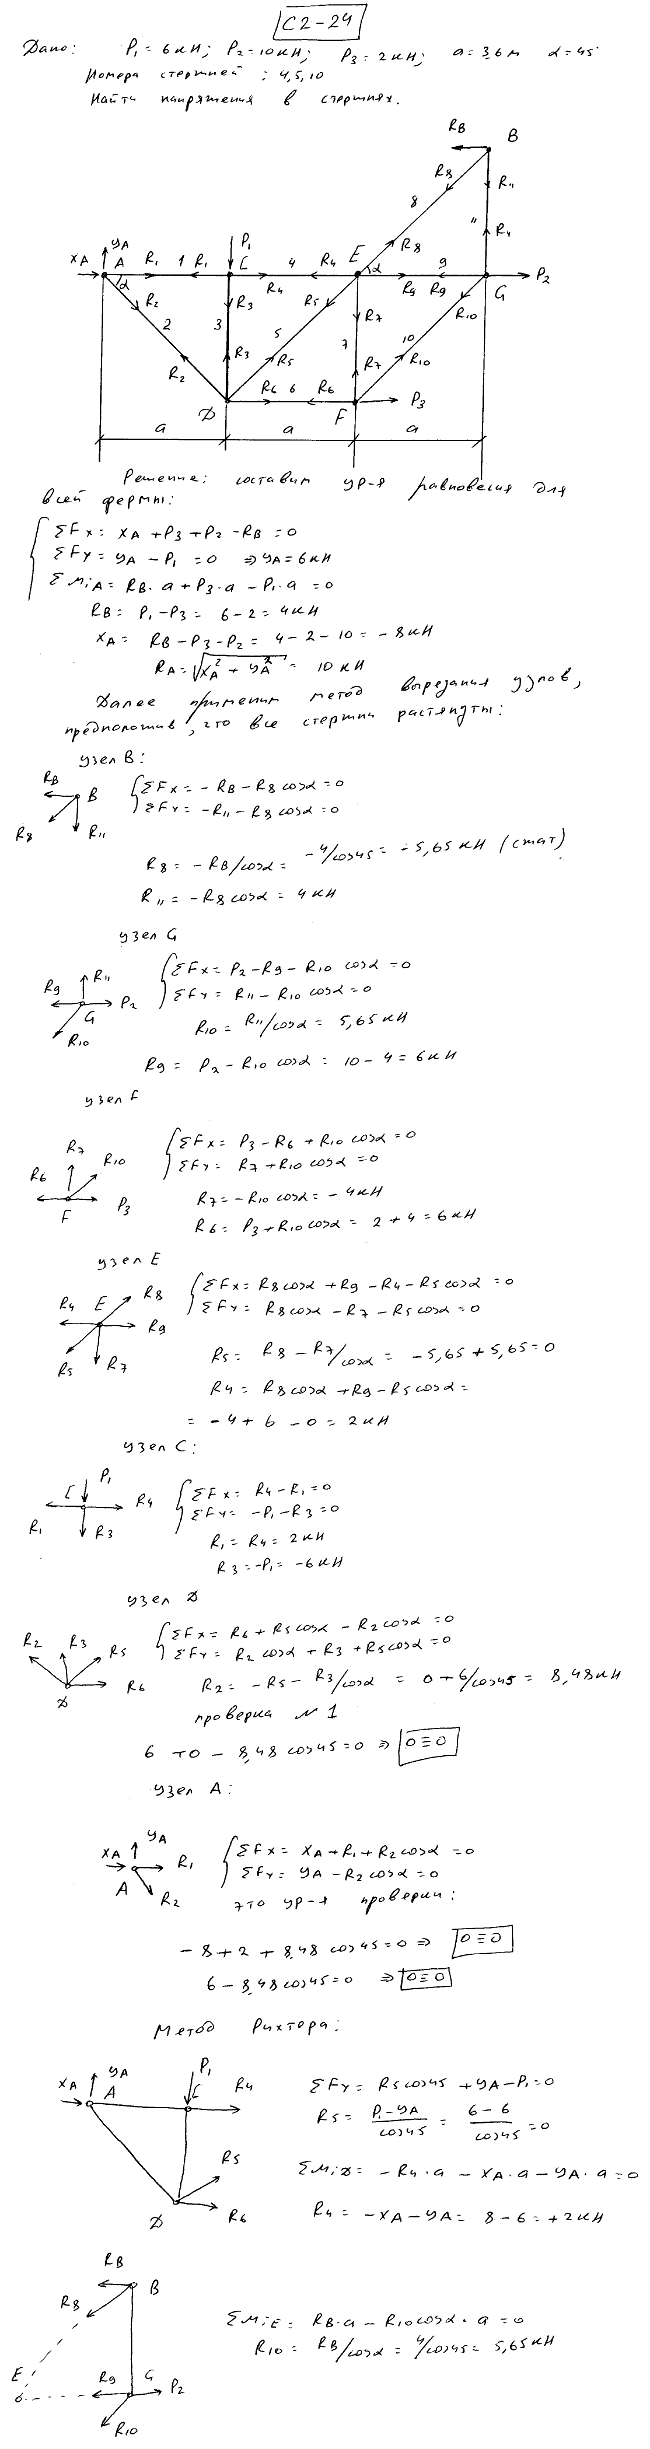 С2-24
Дано: P₁ = 6 кН; P₂ = 10 кН; P₃ = 2 кН; a = 3,6 м α = 45
Номера стержней : 4, 5, 10
Найти напряжения в стержнях.
RB B
R8
8 R11
11
YA P1 R8 R4
XA A R1 1 R1 C 4 R4 E 9 P2
α R4 α R9 R9 G
R2 R3 R5 R7 R10
2 3 5 7 10
R2 R3 R5 R7 R10
R6 6 R6 P3
D F
a a a
Решение: составим ур-я равновесия для
всей фермы:
ΣFx = XA + P3 + P2 - RB = 0
ΣFy = YA - P1 = 0 ⇒ YA = 6 кН
ΣMiA = RB·a + P3·a - P1·a = 0
RB = P1 - P3 = 6 - 2 = 4 кН
XA = RB - P3 - P2 = 4 - 2 - 10 = -8 кН
RA = √(XA² + YA²) = 10 кН
Далее применим метод вырезания узлов,
предположив, что все стержни растянуты:
узел B:
RB B
R8 R11
ΣFx = -RB - R8 cosα = 0
ΣFy = -R11 - R8 cosα = 0
R8 = -RB/cosα = -4/cos45 = -5,65 кН (сжат)
R11 = -R8 cosα = 4 кН
узел G
R9 R11
G P2
R10
ΣFx = P2 - R9 - R10 cosα = 0
ΣFy = R11 - R10 cosα = 0
R10 = R11/cosα = 5,65 кН
R9 = P2 - R10 cosα = 10 - 4 = 6 кН
узел F
R7
R6 R10
F P3
ΣFx = P3 - R6 + R10 cosα = 0
ΣFy = R7 + R10 cosα = 0
R7 = -R10 cosα = -4 кН
R6 = P3 + R10 cosα = 2 + 4 = 6 кН
узел E
R4 E R8
R9
R5 R7
ΣFx = R8 cosα + R9 - R4 - R5 cosα = 0
ΣFy = R8 cosα - R7 - R5 cosα = 0
R5 = R8 - R7/cosα = -5,65 + 5,65 = 0
R4 = R8 cosα + R9 - R5 cosα =
= -4 + 6 - 0 = 2 кН
узел C:
P1
C R4
R1 R3
ΣFx = R4 - R1 = 0
ΣFy = -P1 - R3 = 0
R1 = R4 = 2 кН
R3 = -P1 = -6 кН
узел D
R2 R3 R5
R6
D
ΣFx = R6 + R5 cosα - R2 cosα = 0
ΣFy = R2 cosα + R3 + R5 cosα = 0
R2 = -R5 - R3/cosα = 0 + 6/cos45 = 8,48 кН
проверка N 1
6 + 0 - 8,48 cos45 = 0 ⇒ 0 ≡ 0
узел A:
XA YA
R1
A R2
ΣFx = XA + R1 + R2 cosα = 0
ΣFy = YA - R2 cosα = 0
это ур-я проверки:
-8 + 2 + 8,48 cos45 = 0 ⇒ 0 ≡ 0
6 - 8,48 cos45 = 0 ⇒ 0 ≡ 0
Метод Риттера:
XA YA P1
A C R4
R5
R6
D
ΣFy = R5 cos45 + YA - P1 = 0
R5 = (P1 - YA)/cos45 = (6 - 6)/cos45 = 0
ΣMiD = -R4·a - XA·a - YA·a = 0
R4 = -XA - YA = 8 - 6 = +2 кН
RB
R8 B
E R9 G P2
R10
ΣMiE = RB·a - R10 cosα·a = 0
R10 = RB/cosα = 4/cos45 = 5,65 кН